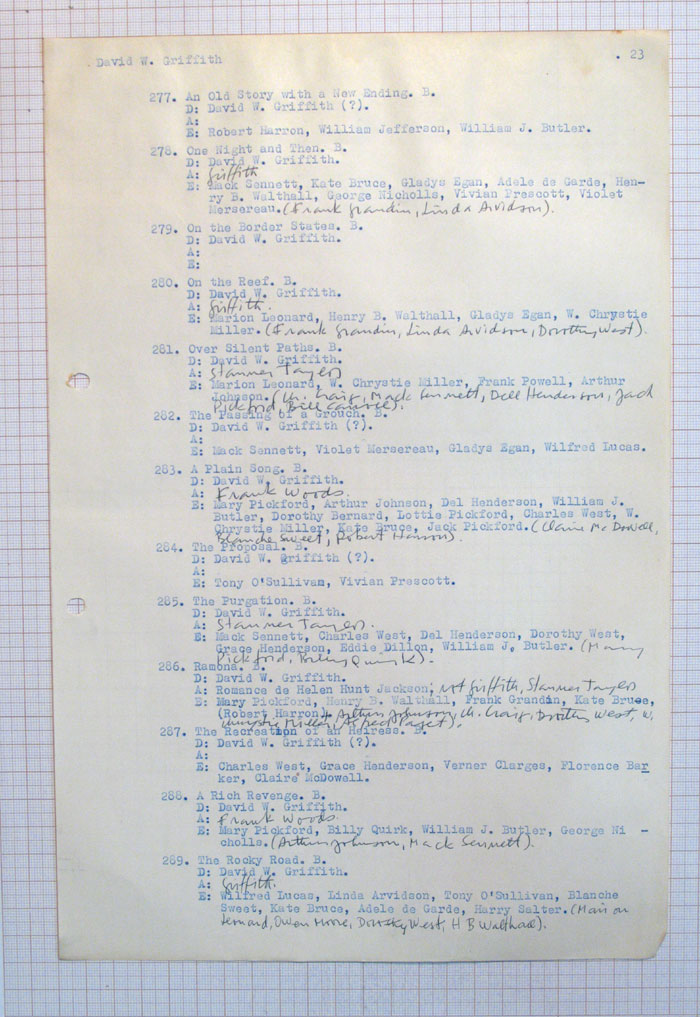 David W. Griffith . 23
277. An Old Story with a New Ending. B.
D: David W. Griffith (?).
A:
E: Robert Harron, William Jefferson, William J. Butler.
278. One Night and Then. B.
D: David W. Griffith.
A: Griffith
E: Mack Sennett, Kate Bruce, Gladys Egan, Adele de Garde, Hen-
ry B. Walthall, George Nicholls, Vivian Prescott, Violet
Mersereau. (Frank Grandin, Linda Arvidson).
279. On the Border States. B.
D: David W. Griffith.
A:
E:
280. On the Reef. B.
D: David W. Griffith.
A: Griffith.
E: Marion Leonard, Henry B. Walthall, Gladys Egan, W. Chrystie
Miller. (Frank Grandin, Linda Arvidson, Dorothy West).
281. Over Silent Paths. B.
D: David W. Griffith.
A: Stanner Taylor
E: Marion Leonard, W. Chrystie Miller, Frank Powell, Arthur
Johnson. (Ch. Craig, Mack Sennett, Dell Henderson, Jack
Pickford, Bill
282. The Passing of a Grouch. B.
D: David W. Griffith (?).
A:
E: Mack Sennett, Violet Mersereau, Gladys Egan, Wilfred Lucas.
283. A Plain Song. B.
D: David W. Griffith.
A: Frank Woods.
E: Mary Pickford, Arthur Johnson, Del Henderson, William J.
Butler, Dorothy Bernard, Lottie Pickford, Charles West, W.
Chrystie Miller, Kate Bruce, Jack Pickford. (Claire McDowell,
Blanche Sweet, Robert Harron).
284. The Proposal. B.
D: David W. Griffith (?).
A:
E: Tony O'Sullivan, Vivian Prescott.
285. The Purgation. B.
D: David W. Griffith.
A: Stanner Taylor.
E: Mack Sennett, Charles West, Del Henderson, Dorothy West,
Grace Henderson, Eddie Dillon, William J. Butler. (Mary
Pickford, Billy Quirk).
286. Ramona. B.
D: David W. Griffith.
A: Romance de Helen Hunt Jackson; Griffith, Stanner Taylor
E: Mary Pickford, Henry B. Walthall, Frank Grandin, Kate Bruce,
(Robert Harron), Arthur Johnson, Ch. Craig, Dorothy West, W.
Chrystie Miller, Alfred Paget).
287. The Recreation of an Heiress. B.
D: David W. Griffith (?).
A:
E: Charles West, Grace Henderson, Verner Clarges, Florence Bar
ker, Claire McDowell.
288. A Rich Revenge. B.
D: David W. Griffith.
A: Frank Woods.
E: Mary Pickford, Billy Quirk, William J. Butler, George Ni -
cholls. (Arthur Johnson, Mack Sennett).
289. The Rocky Road. B.
D: David W. Griffith.
A: Griffith.
E: Wilfred Lucas, Linda Arvidson, Tony O'Sullivan, Blanche
Sweet, Kate Bruce, Adele de Garde, Harry Salter. (Marion
Leonard, Owen Moore, Dorothy West, H B Walthall).